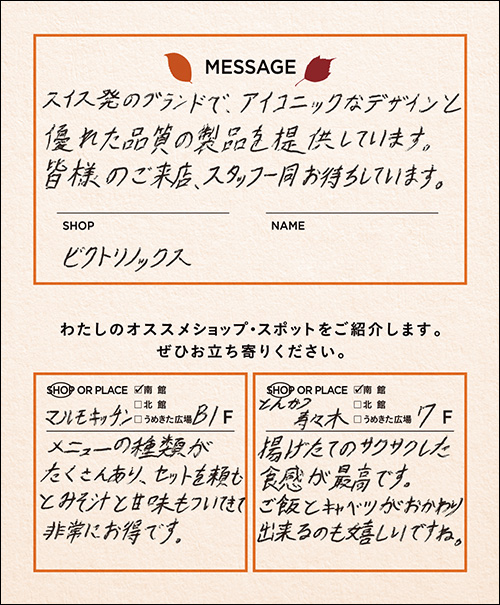 MESSAGE
スイス発のブランドで、アイコニックなデザインと
優れた品質の製品を提供しています。
皆様のご来店、スタッフ一同お待ちしています。
SHOP
NAME
ビクトリノックス
わたしのオススメショップ・スポットをご紹介します。
ぜひお立ち寄りください。
SHOP OR PLACE ☑南 館
□北 館
マルモキッチン □うめきた広場 B1 F
メニューの種類が
たくさんあり、セットを頼む
とみそ汁と甘味もついてきて
非常にお得です。
SHOP OR PLACE ☑南 館
とんかつ □北 館
寿々木 □うめきた広場 7 F
揚げたてのサクサクした
食感が最高です。
ご飯とキャベツがおかわり
出来るのも嬉しいですね。